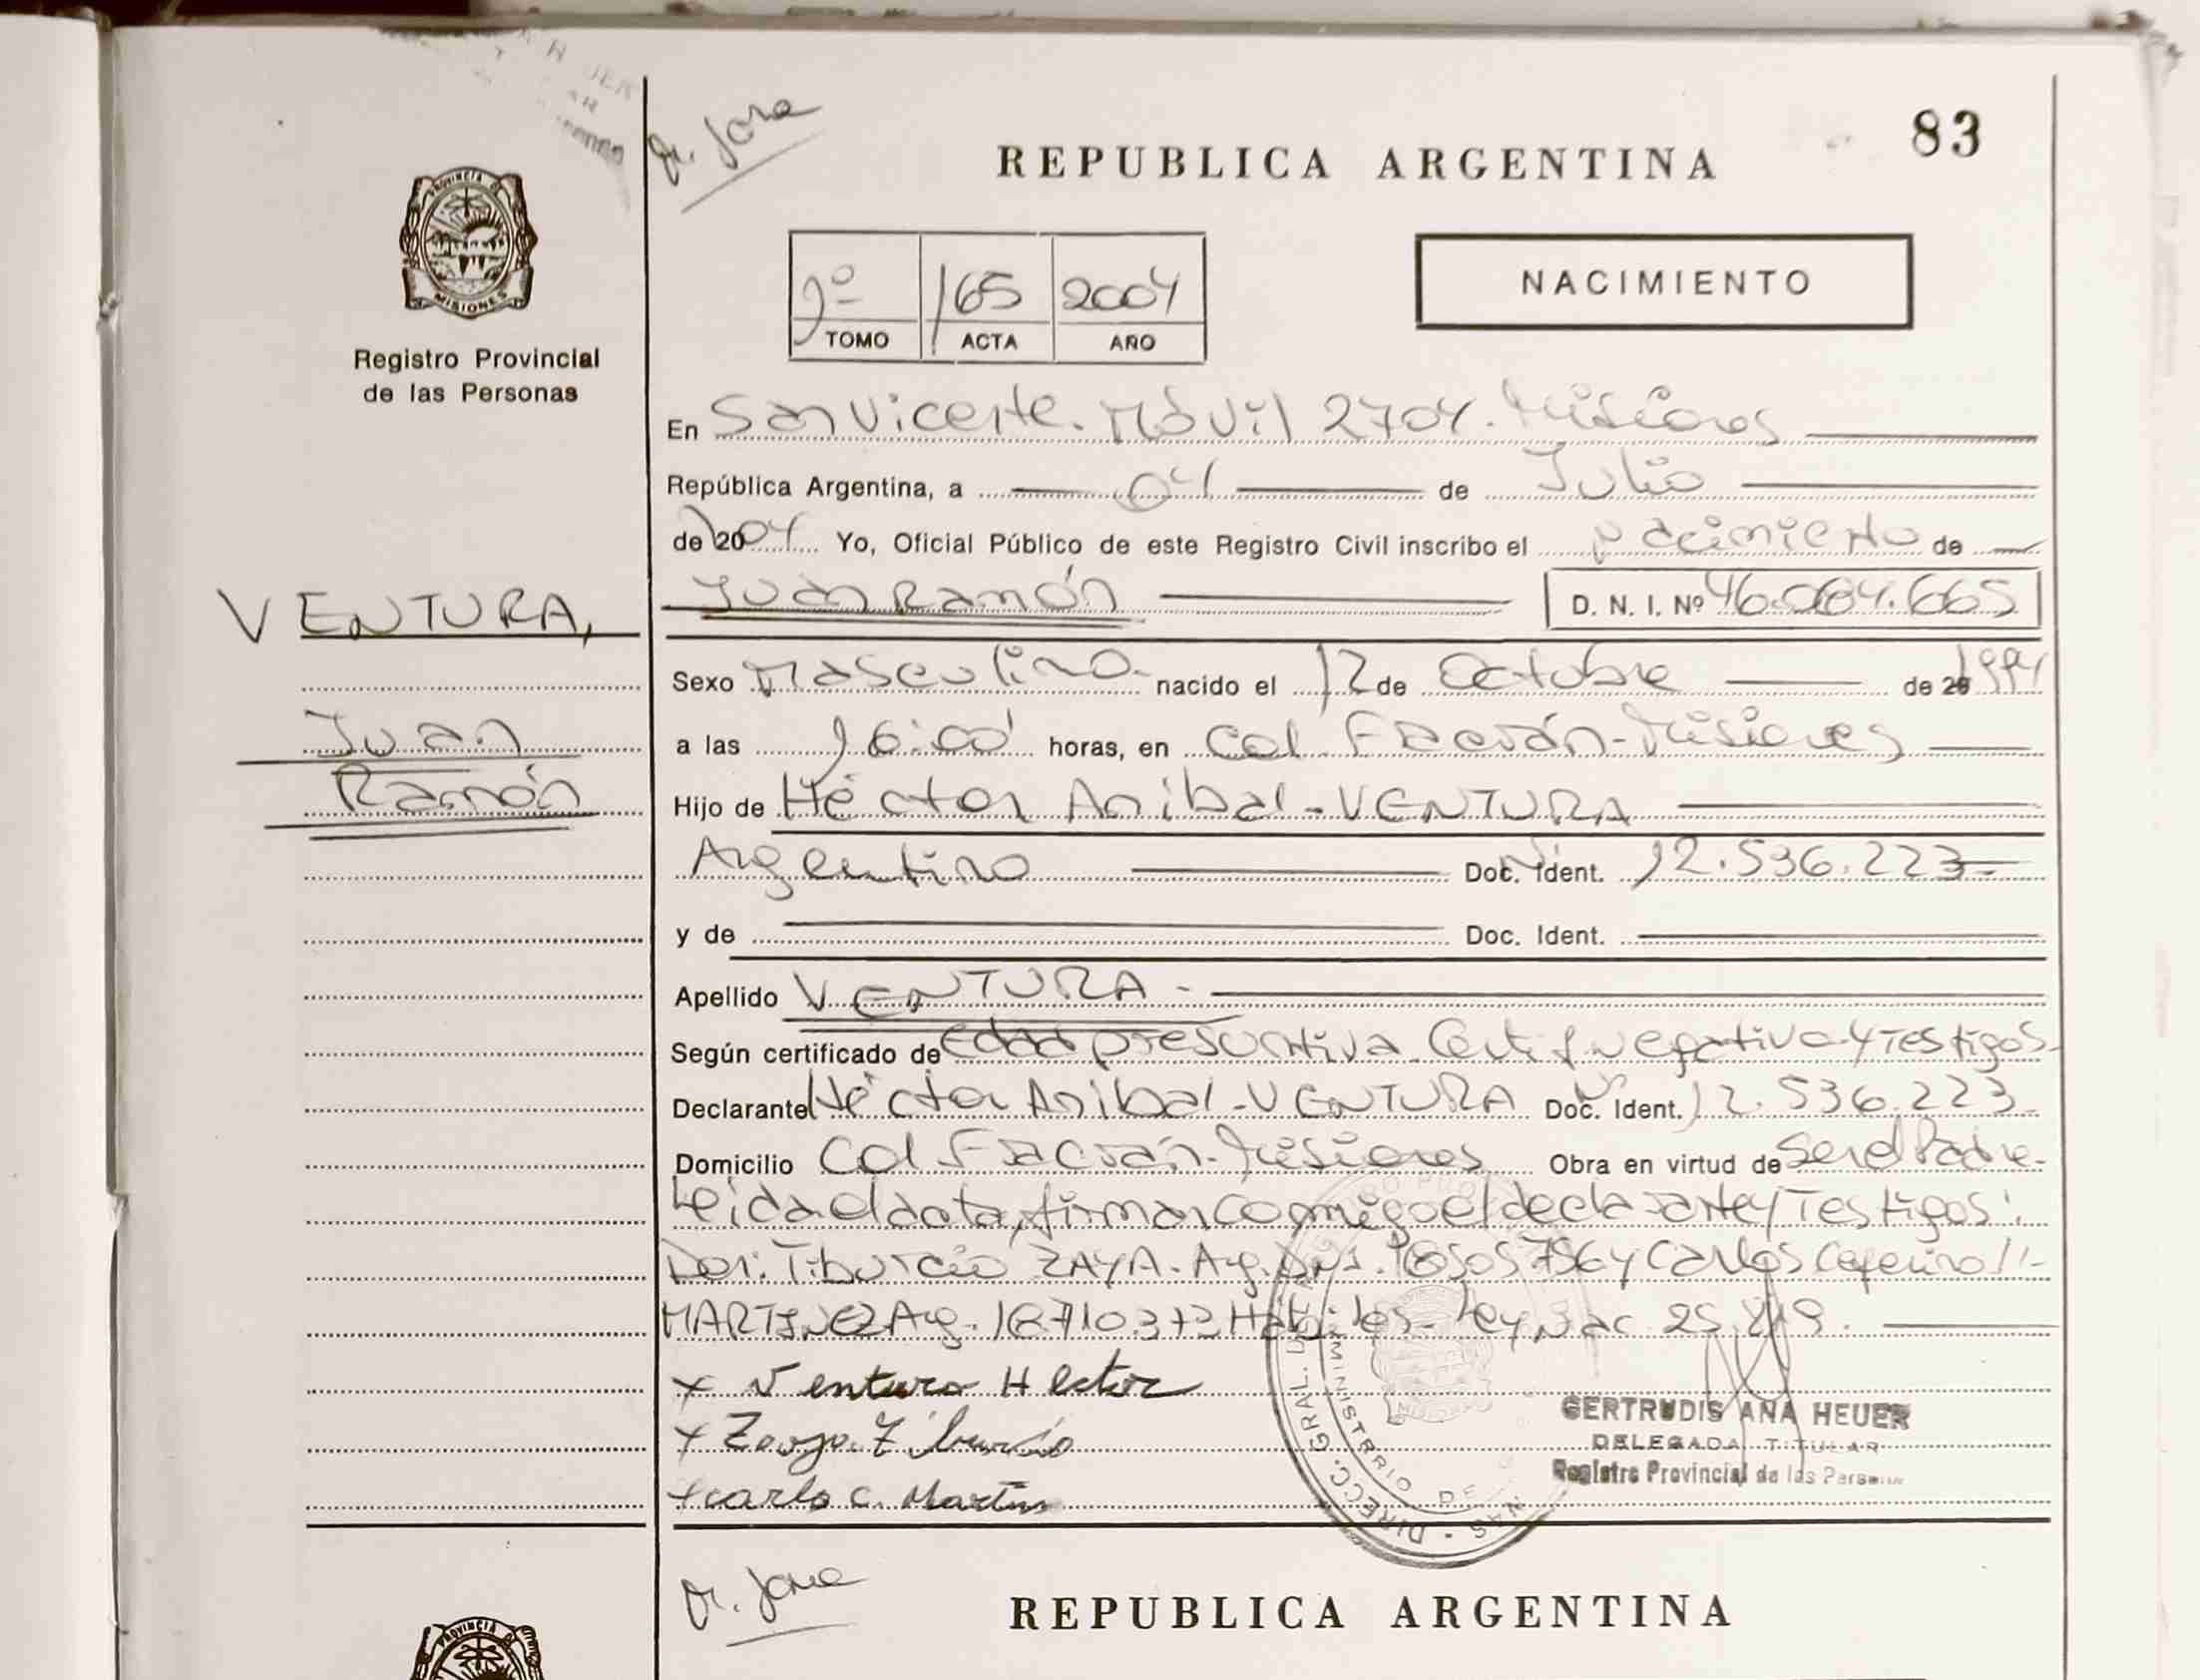 Dr. Jose
REPUBLICA ARGENTINA
83
PROVINCIA DE
MISIONES
Registro Provincial
de las Personas
1º 165 2004
TOMO ACTA AÑO
NACIMIENTO
En San Vicente. Móvil 2704. Misiones
República Argentina, a 04 de Julio
de 2004 Yo, Oficial Público de este Registro Civil inscribo el nacimiento de
VENTURA,
Juan Ramón
D. N. I. Nº 46.084.665
Sexo Masculino- nacido el 12 de Octubre de 20 1994
Juan
a las 16:00 horas, en Col. Fracrán-Misiones
Ramón
Hijo de Héctor Anibal-VENTURA
Argentino Doc. Ident. 12.536.223-
y de Doc. Ident.
Apellido VENTURA-
Según certificado de Edad presuntiva. Certif. negativa y Testigos-
Declarante Héctor Anibal-VENTURA Doc. Ident. 12.536.223-
Domicilio Col Fracrán-Misiones Obra en virtud de ser el Padre-
Leida el acta, firman conmigo el declarante y Testigos:
Don: Tiburcio ZAYA. Arg. Dni. 18505756 y Carlos Ceferino
MARTINEZ Arg. 18710372 Hábiles- Ley Nac 25.819.
x Ventura Hector
x Zaya Tiburcio
x carlo c. Martin
GERTRUDIS ANA HEUER
DELEGADA TITULAR
Registro Provincial de las Personas
DIRECC. GRAL.
MINISTERIO DE
Dr. Jose
REPUBLICA ARGENTINA
PROVINCIA